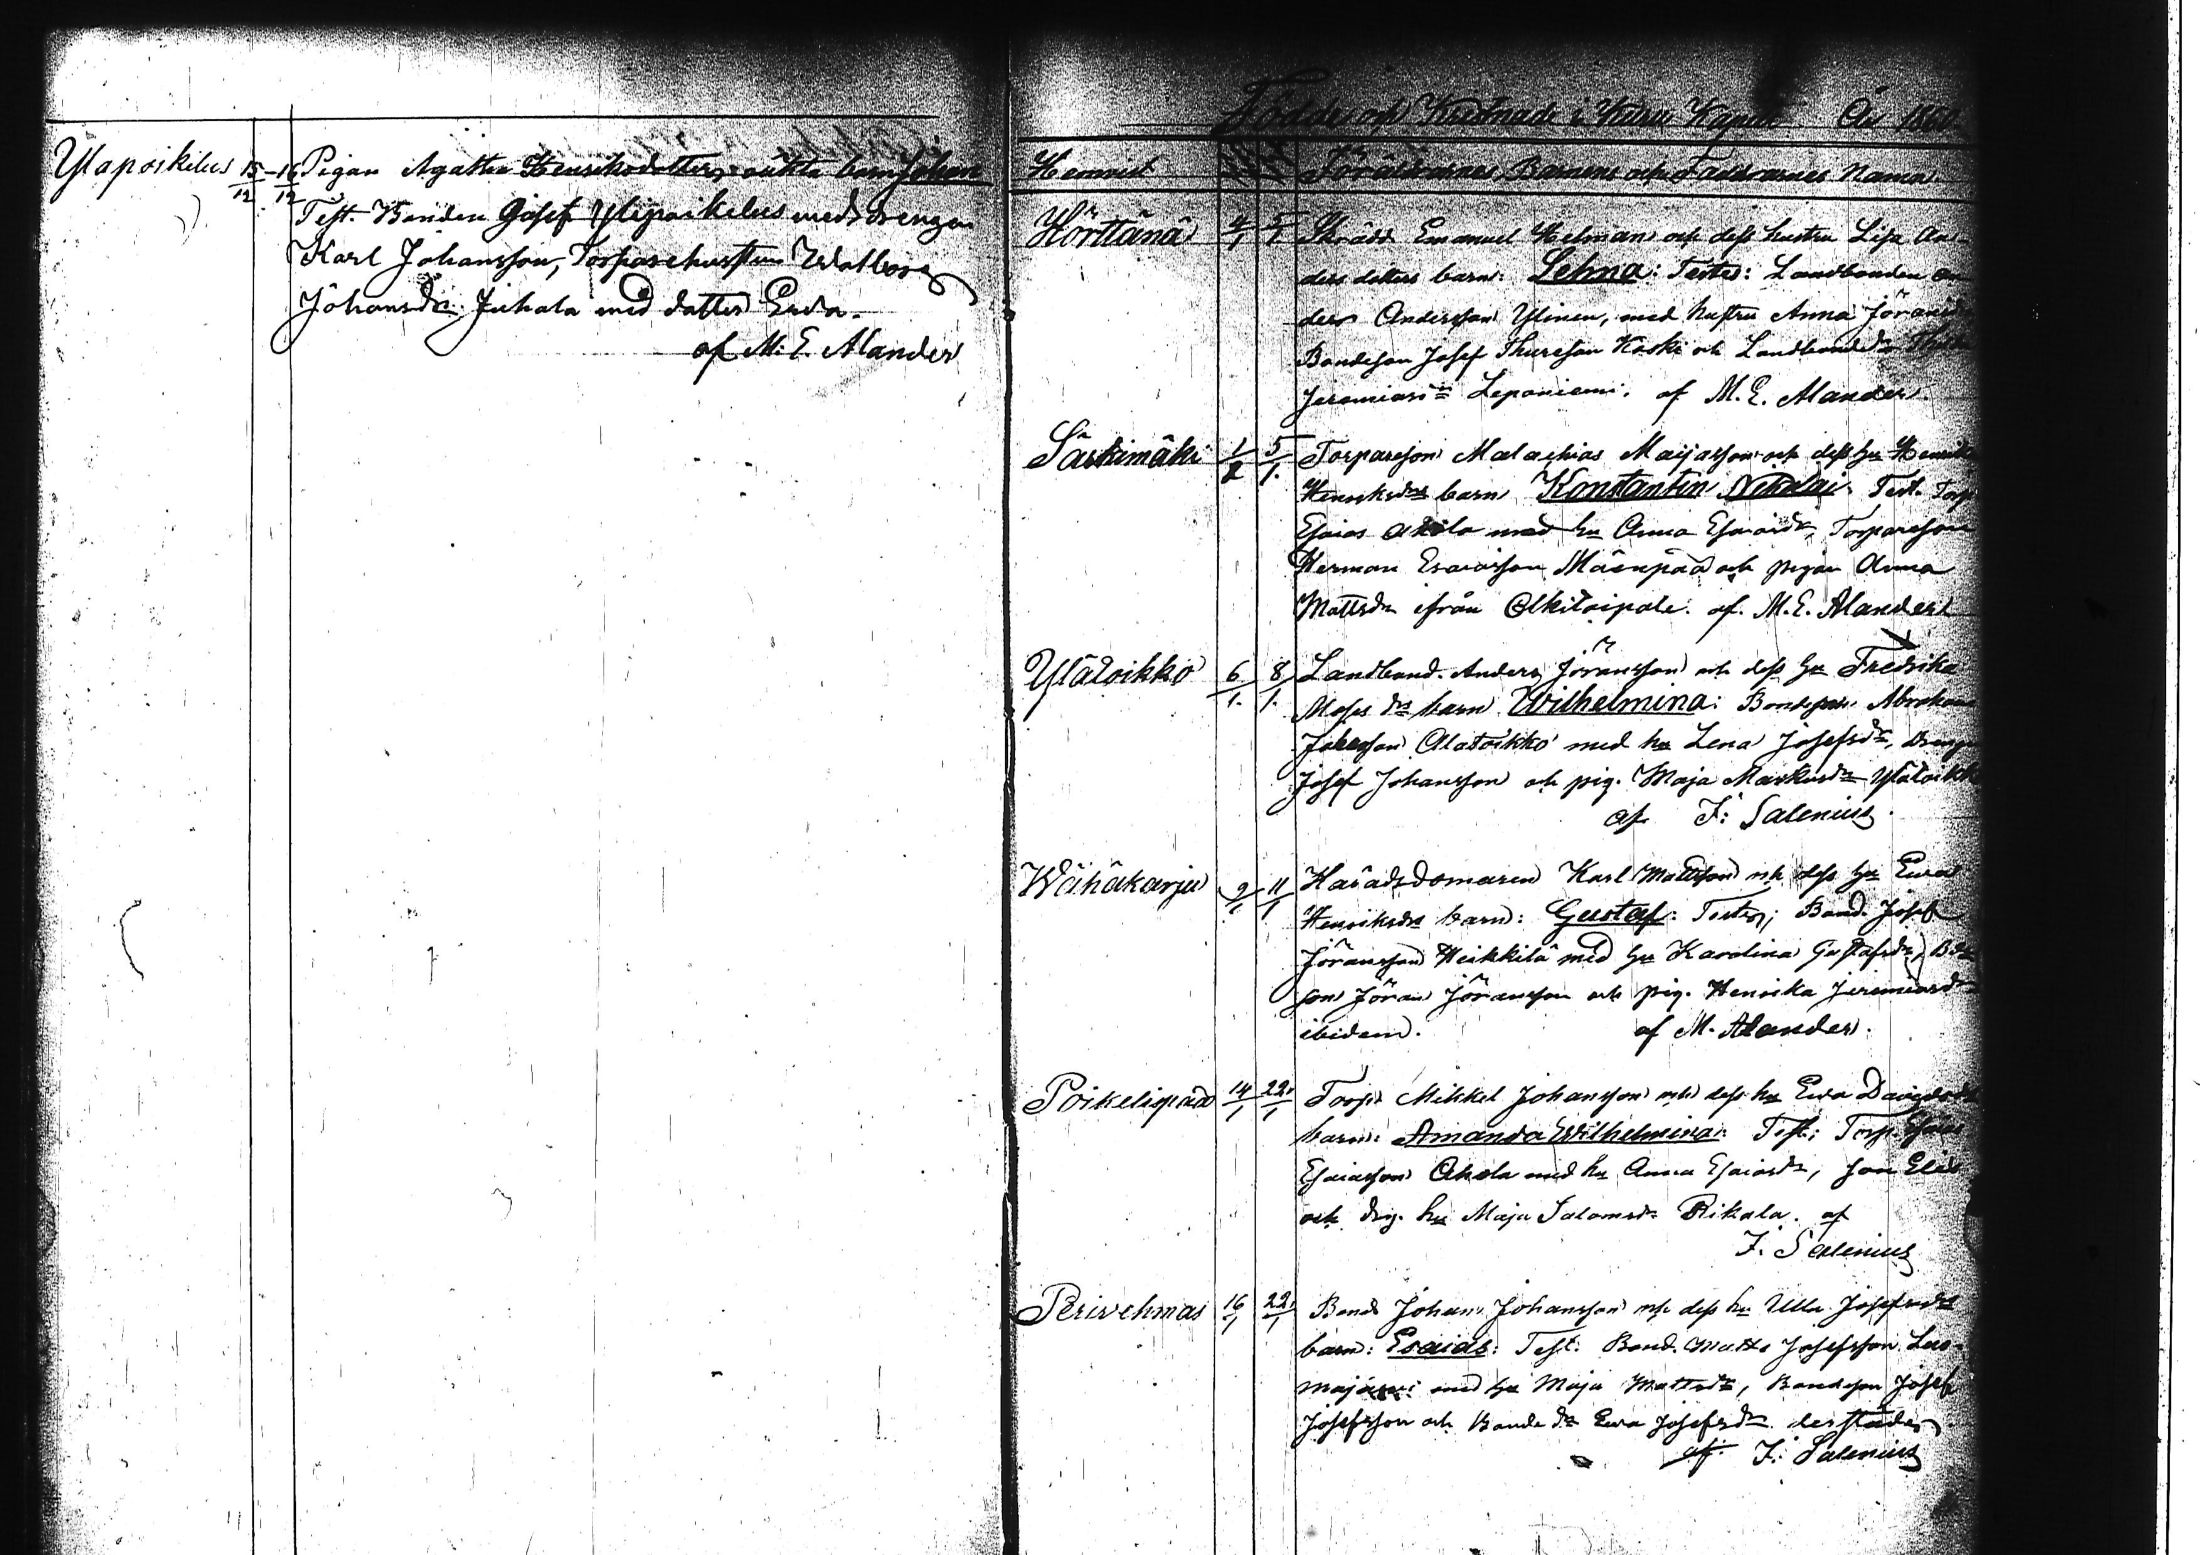 Ylapoikilus 15/12 - 16/12 Pigan Agatha Henriksdotters oäkta barn Johan
Test. Bonden Josef Ylipoikelus med drengen
Karl Johansson, Torparehustrun Walborg
Johansdr Juhala med dotter Ewa.
af M. E. Alander
Födde och Kristnade i Kapell År 1860
Hemvist Föräldrarnes, Barnens och Faddrarnes Namn.
Hörttänä 4/1 5/1 Skrädd Emanuel Helman och dess hustru Lisa An-
ders dotters barn: Selma: Testes: Landbonden An-
ders Andersson Ylinen, med hustru Anna Jöransdr
Bondeson Josef Thuresson Koski och Landbondedr
Jeremiasdr Leponiemi. af M. E. Alander.
Särkimäki 1/1 5/1. Torpareson Malachias Maijasson och dess hu Henrika
Henriksdrs barn Konstantin Nikolai. Test. Torp
Esaias Akola med hu Anna Esaiasdr, Torpareson
Herman Esaiasson Mäenpää och pigan Anna
Mattsdr ifrån Olkitaipale. af. M. E. Alander
Ylätoikko 6/1. 8/1. Landbond. Anders Jöransson och dess hu Fredrika
Moses drs barn Wilhelmina: Bondeson Abraham
Alatoikko med hu Lena Josefsdr, Dreng
Josef Johansson och pig. Maja Markusdr Ylätoikko
af F: Salenius.
Wähäkarju 9/1 11/1 Häradsdomaren Karl Mattsson och dess hu Ewa
Henriksdrs barn: Gustaf: Testes; Bond. Josef
Jöransson Heikkilä med hu Karolina Gustafsdr, Bde-
son Jöran Jöransson och pig. Henrika Jeremiasdr
ibidem. af M. Alander.
Poikelispää 14/1 22/1 Torp. Mikkel Johansson och dess hu Ewa Davidsdrs
barn: Amanda Wilhelmina: Test; Torp. Esaias
Esaiasson Akola med hu Anna Esaiasdr, son Elis
och drg. hu Maja Salomsdr Rikala. af
F. Salenius
Perivehmas 16/1 22/1 Bond Johan Johansson och dess hu Ulla Josefsdrs
barn: Esaias: Test: Bond. Matts Josefsson Luo-
majärvi med hu Maja Mattsdr, Bondeson Josef
Josefsson och Bonde dr Ewa Josefsdr derstädes
af F: Salenius